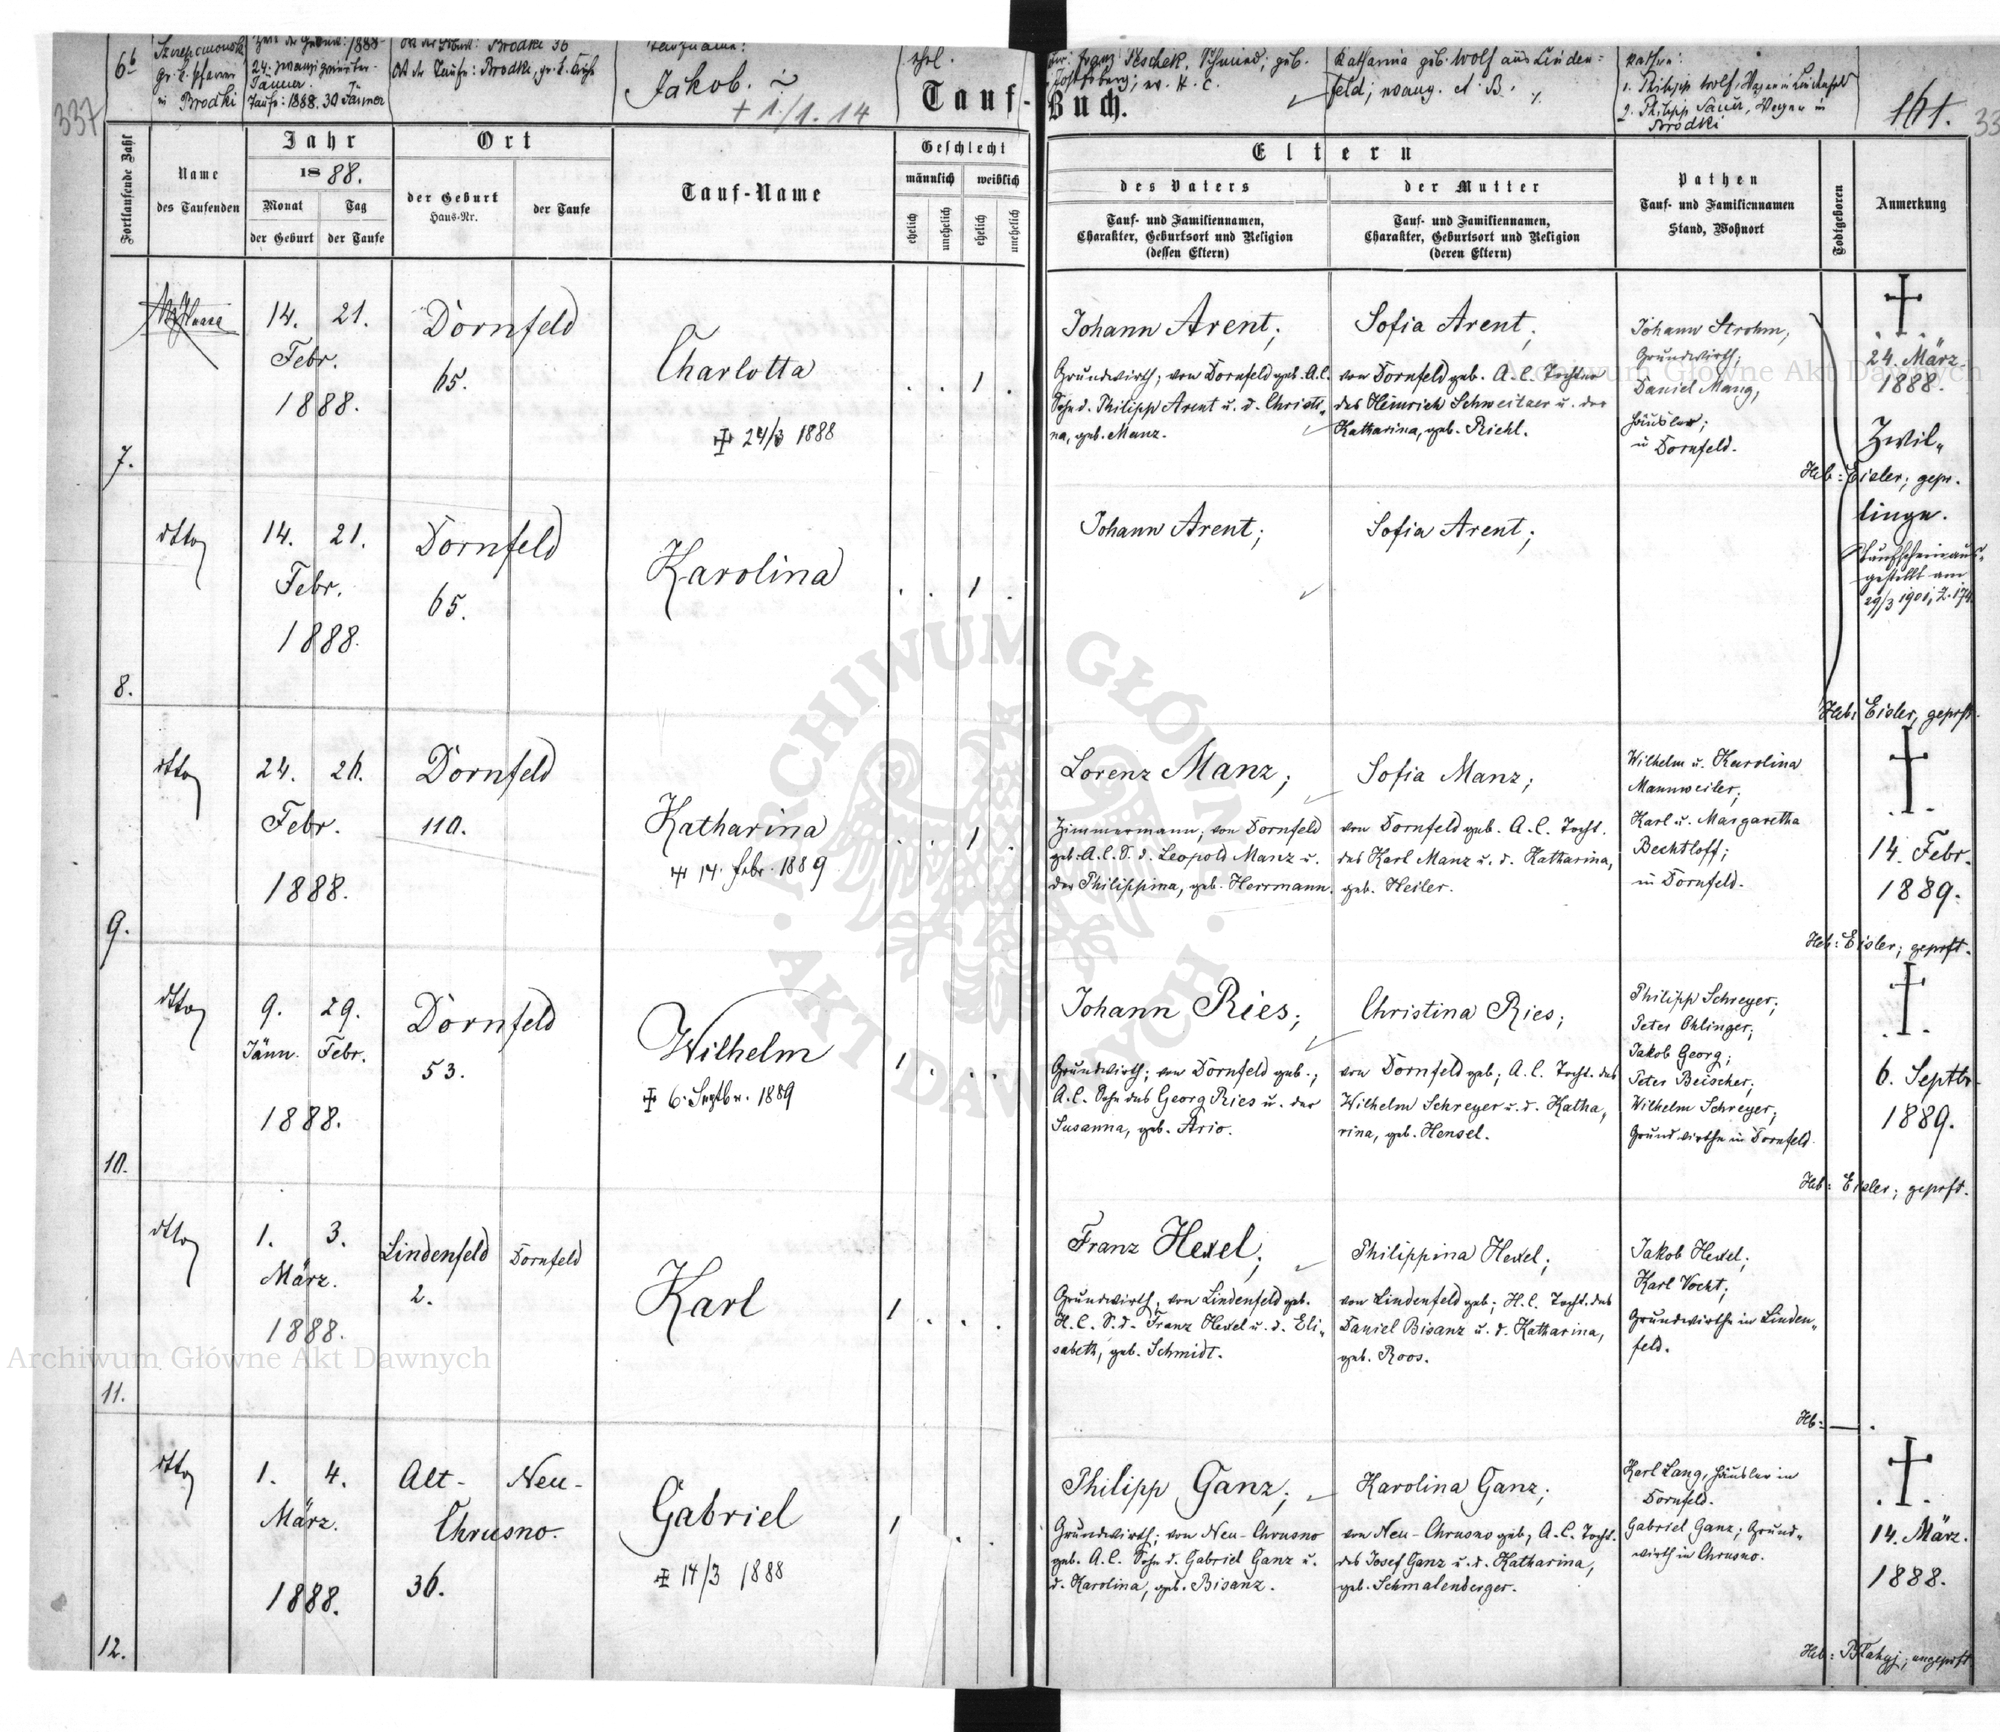 337
6b
gr. k. Pfarrer
in Brodki
24. zwanzigvierter
Jänner.
Taufe: 1888. 30 Jänner
Ort der Geburt: Brodki 36
Ort der Taufe: Brodki, gr. k. Kirche
Taufname:
Jakob.
+ 1/1. 14
ehel.
Tauf-Buch.
Franz Peschek, Schmied, geb.
Josefsberg; ev. H. C.
Katharina geb. Wolf aus Linden-
feld; evang. A. B.
Pathen:
1. Philipp Wolf, Wagner in Lindenfeld
2. Philipp Sauer, Wagner in
Brodki
161.
33
Fortlaufende Zahl
Name
des Taufenden
Jahr
1888.
Monat
der Geburt
Tag
der Taufe
Ort
der Geburt
Haus-Nr.
der Taufe
Tauf-Name
Geschlecht
männlich
weiblich
ehelich
unehelich
ehelich
unehelich
Eltern
des Vaters
Tauf- und Familiennamen,
Charakter, Geburtsort und Religion
(dessen Eltern)
der Mutter
Tauf- und Familiennamen,
Charakter, Geburtsort und Religion
(deren Eltern)
Pathen
Tauf- und Familiennamen
Stand, Wohnort
Todtgeboren
Anmerkung
7.
14. 21.
Febr.
1888.
Dornfeld
65.
Charlotta
24/3 1888
. . 1 .
Johann Arent;
Grundwirth; von Dornfeld geb. A. C.
Sohn d. Philipp Arent u. d. Christi-
na, geb. Manz.
Sofia Arent;
von Dornfeld geb. A. C. Tochter
des Heinrich Schweitzer u. der
Katharina, geb. Riehl.
Johann Strohm,
Grundwirth;
Daniel Mang,
Häusler;
in Dornfeld.
24. März
1888.
Zwil-
Heb: Eisler; gepr.
linge.
8.
dtto
14. 21.
Febr.
1888.
Dornfeld
65.
Karolina
. . 1 .
Johann Arent;
Sofia Arent;
Taufschein aus-
gestellt am
29/3 1901, Z. 174
Heb: Eisler, geprft.
9.
dtto
24. 26.
Febr.
1888.
Dornfeld
110.
Katharina
14. Febr. 1889
. . 1 .
Lorenz Manz;
Zimmermann; von Dornfeld
geb. A. C. S. d. Leopold Manz u.
der Philippina, geb. Herrmann.
Sofia Manz;
von Dornfeld geb. A. C. Tocht.
des Karl Manz u. d. Katharina,
geb. Heiler.
Wilhelm u. Karolina
Mannweiler;
Karl u. Margaretha
Bechtloff;
in Dornfeld.
14. Febr.
1889.
Heb: Eisler; geprft.
10.
dtto
9. 29.
Jänn. Febr.
1888.
Dornfeld
53.
Wilhelm
6. Septbr. 1889
1 . . .
Johann Ries;
Grundwirth; von Dornfeld geb.;
A. C. Sohn des Georg Ries u. der
Susanna, geb. Ario.
Christina Ries;
von Dornfeld geb; A. C. Tocht. des
Wilhelm Schreyer u. d. Katha,
rina, geb. Hensel.
Philipp Schreyer;
Peter Ohlinger;
Jakob Georg;
Peter Beischer;
Wilhelm Schreyer;
Grundwirthe in Dornfeld.
6. Septbr.
1889.
Heb: Eisler; geprft.
11.
dtto
1. 3.
März.
1888.
Lindenfeld
2.
Dornfeld
Karl
1 . . .
Franz Hexel;
Grundwirth, von Lindenfeld geb.
H. C. S. d. Franz Hexel u. d. Eli-
sabeth, geb. Schmidt.
Philippina Hexel;
von Lindenfeld geb; H. C. Tocht. des
Daniel Bisanz u. d. Katharina,
geb. Roos.
Jakob Hexel;
Karl Vocht;
Grundwirthe in Linden-
feld.
Heb: — .
12.
dtto
1. 4.
März.
1888.
Alt- Neu-
Chrusno.
36.
Gabriel
14/3 1888
1 . .
Philipp Ganz;
Grundwirth; von Neu-Chrusno
geb. A. C. Sohn d. Gabriel Ganz u.
d. Karolina, geb. Bisanz.
Karolina Ganz;
von Neu-Chrusno geb; A. C. Tocht.
des Josef Ganz u. d. Katharina,
geb. Schmalenberger.
Karl Lang, Häusler in
Dornfeld.
Gabriel Ganz; Grund-
wirth in Chrusno.
14. März.
1888.
ungeprft
Archiwum Główne Akt Dawnych
Archiwum Główne Akt Dawnych
ARCHIWUM GŁÓWNE
AKT DAWNYCH